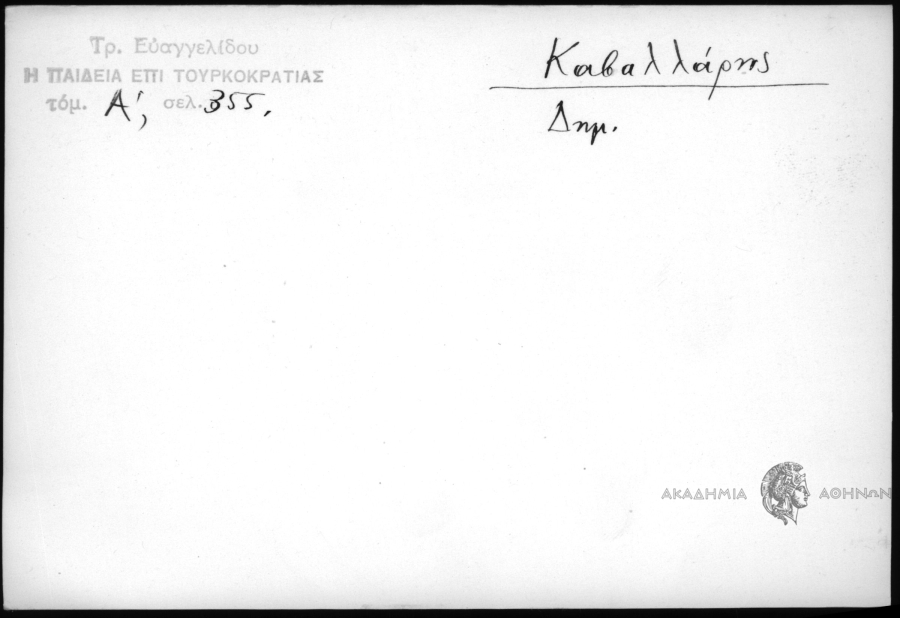 Τρ. Εὐαγγελίδου
Η ΠΑΙΔΕΙΑ ΕΠΙ ΤΟΥΡΚΟΚΡΑΤΙΑΣ
τόμ. Α΄, σελ. 355.
Καβαλλάρης
Δημ.
ΑΚΑΔΗΜΙΑ ΑΘΗΝΩΝ